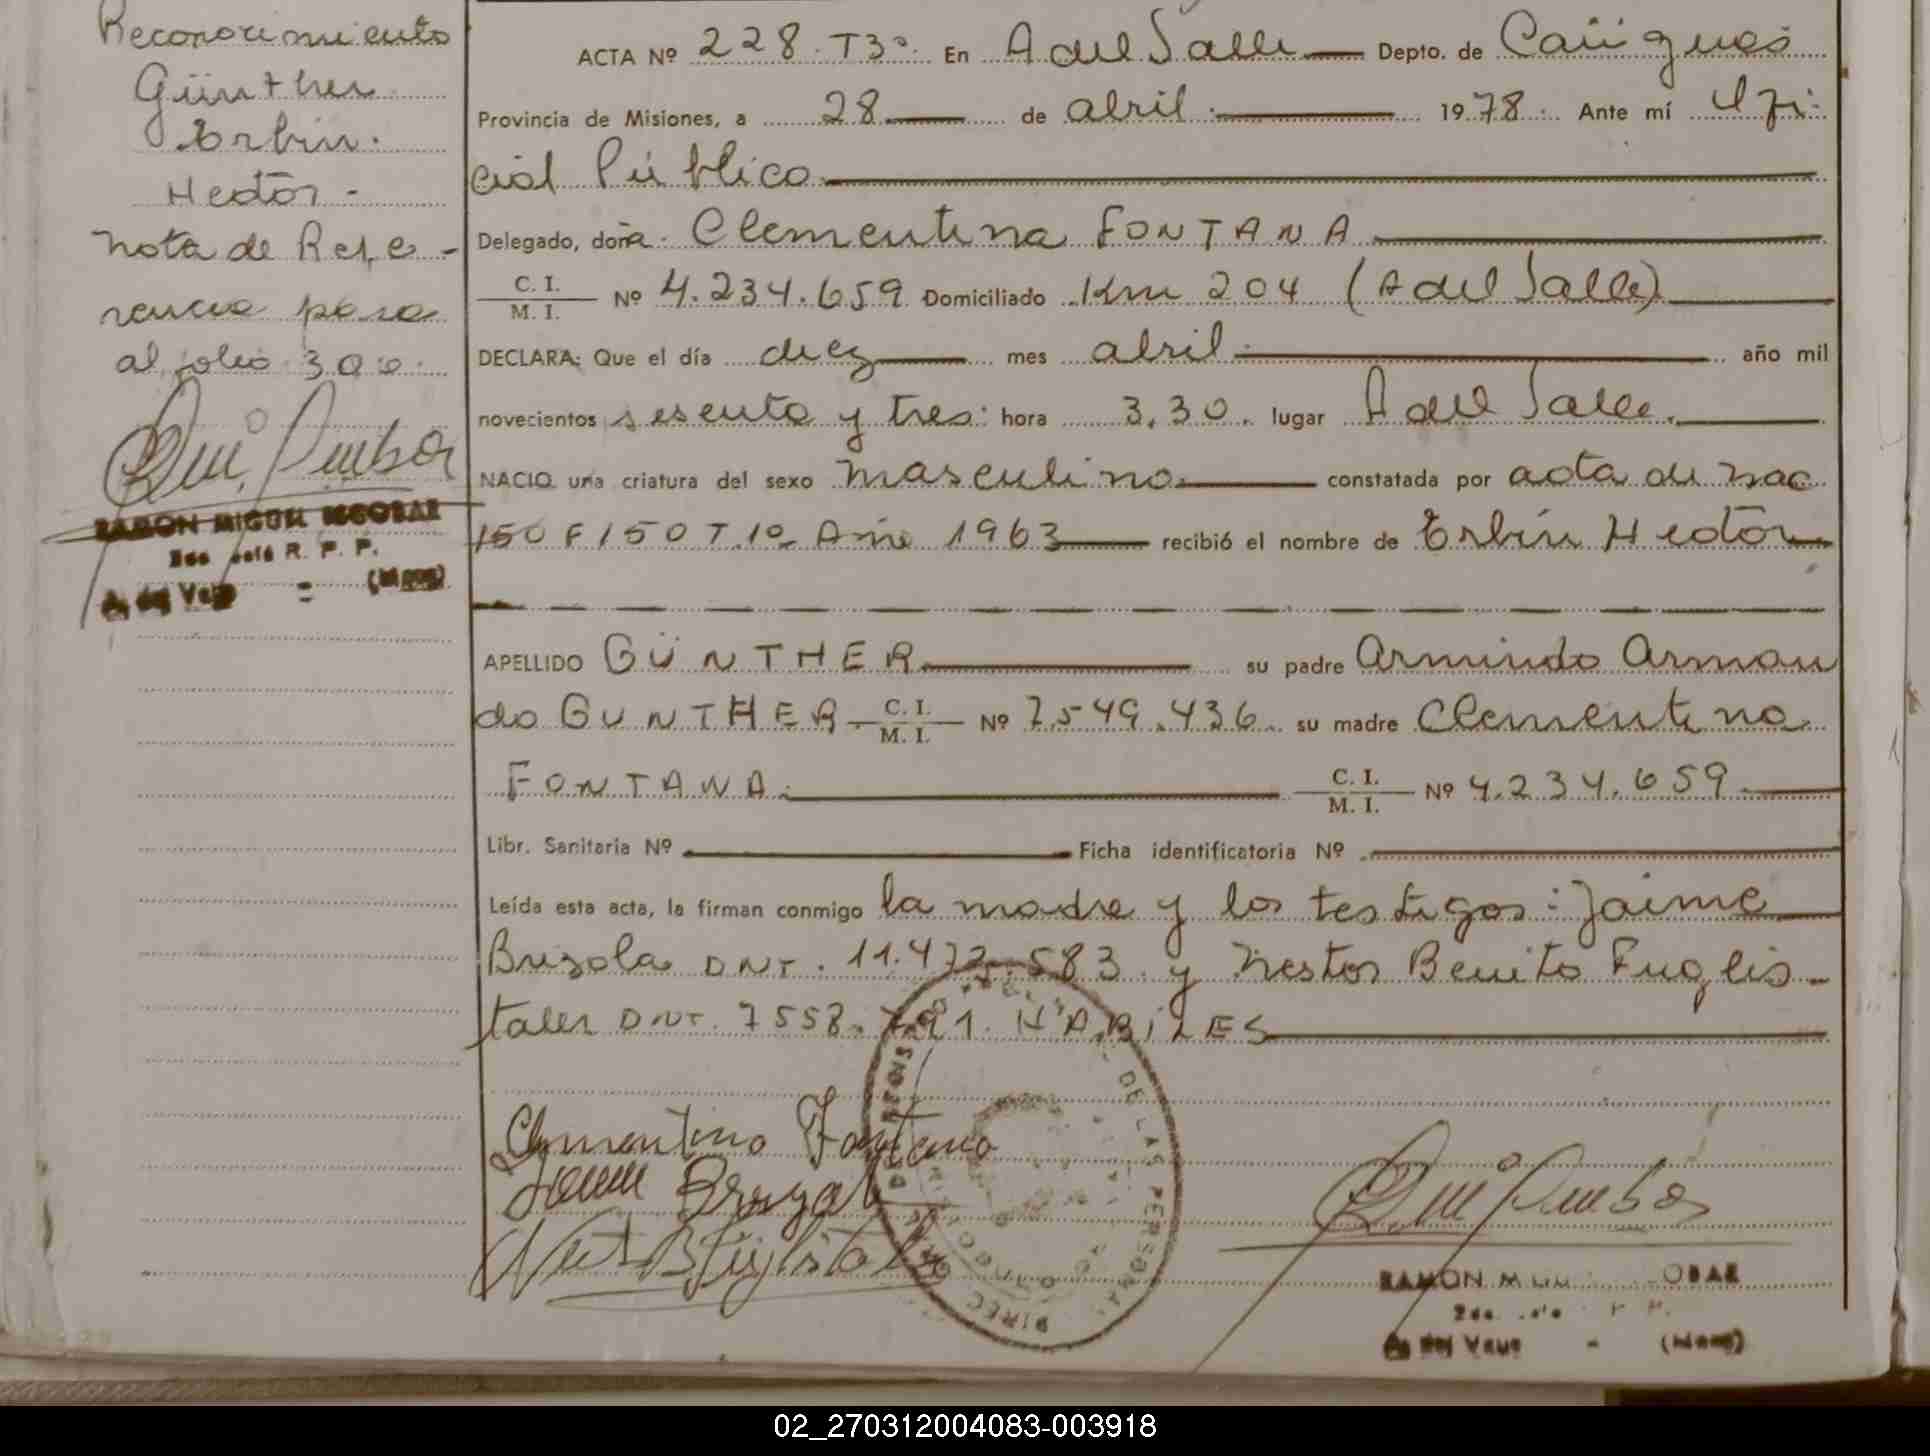 Reconocimiento
Günther
Erbin.
Hedtor -
Nota de Refe -
rencia pasa
al folio 300.
RAMON MIGUEL ESCOBAR
R. P. P.
(Mnes)
ACTA Nº 228. T3º. En A del Valle Depto. de Caiiguas
Provincia de Misiones, a 28 de abril. 1978. Ante mí Ofi-
cial Público
Delegado, doña. Clementina FONTANA
C. I.
M. I. Nº 4.234.659 Domiciliado Km 204 (A del Valle)
DECLARA: Que el día diez mes abril año mil
novecientos sesenta y tres: hora 3.30. lugar A del Valle.
NACIO una criatura del sexo masculino constatada por acta de nac
150 F 150 T. 1º Año 1963 recibió el nombre de Erbin Hedtor
APELLIDO GÜNTHER su padre Armindo Arman
do GUNTHER C. I.
M. I. Nº 7.549.436. su madre Clementina
FONTANA. C. I.
M. I. Nº 4.234.659.
Libr. Sanitaria Nº Ficha identificatoria Nº
Leída esta acta, la firman conmigo la madre y los testigos: Jaime
Brizola DNI. 11.472.583 y Nestor Benito Fuglis-
taler DNI. 7558.791. HABILES
DE LAS PERSONAS
Clementina Fontana
RAMON
(Mnes)
02_270312004083-003918